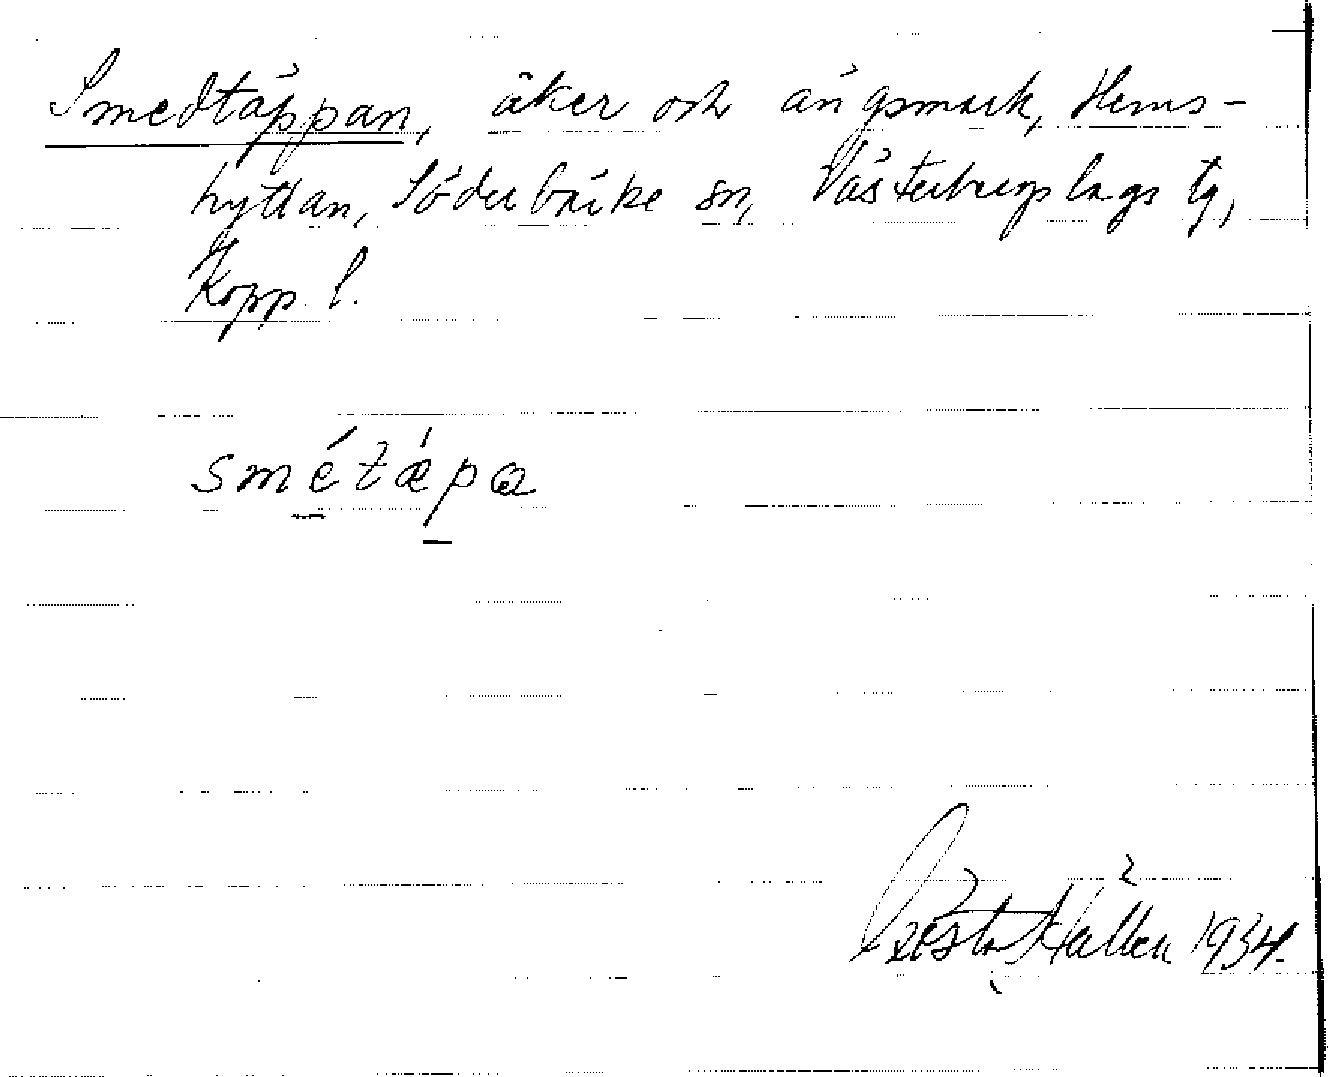 Smedtäppan, åker och ängsmark, Hems-
hyttan, Söderbärke sn, Västerbergslags tg,
Kopp. l.
smétǽpa
Gösta Hallen 1934.